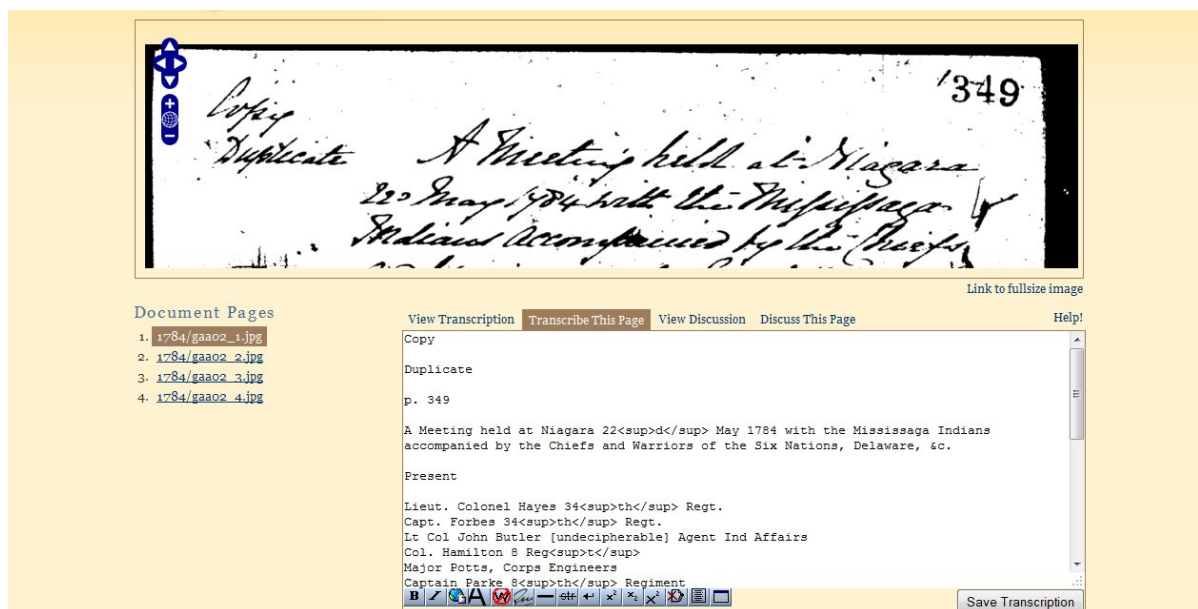 349
Copy
Duplicate
A Meeting held at Niagara
22d May 1784 with the Mississaga
Indians accompanied by the Chiefs
Link to fullsize image
Document Pages
1. 1784/gaa02_1.jpg
2. 1784/gaa02_2.jpg
3. 1784/gaa02_3.jpg
4. 1784/gaa02_4.jpg
View Transcription Transcribe This Page View Discussion Discuss This Page Help!
Copy
Duplicate
p. 349
A Meeting held at Niagara 22<sup>d</sup> May 1784 with the Mississaga Indians
accompanied by the Chiefs and Warriors of the Six Nations, Delaware, &c.
Present
Lieut. Colonel Hayes 34<sup>th</sup> Regt.
Capt. Forbes 34<sup>th</sup> Regt.
Lt Col John Butler [undecipherable] Agent Ind Affairs
Col. Hamilton 8 Reg<sup>t</sup>
Major Potts, Corps Engineers
Captain Parke 8<sup>th</sup> Regiment
Save Transcription